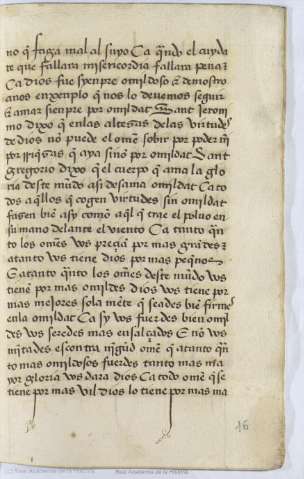 no q̃ faga mal al suyo Ca qñdo el cuyda
te que fallara misericordia fallara pena ⁊
Ca dios fue syenpre omildoso ⁊ demostro
anos enxenplo q̃ nos lo devemos seguir
⁊ amar sienpre por omildat Sant Jeroni
mo dixo q̃ enlas altezas delas virtudes
de dios no puede el omẽ sobir por poder nĩ
por rriq̃zas q̃ aya sinõ por omildat Sant
gregorio dixo q̃ el cuerpo q̃ ama la glo
ria deste mũdo asi desama omildat Ca to
dos aq̃llos q̃ cogen virtudes sin omildat
fazen biẽ asy comõ aql̃ q̃ trae el poluo en
su mano delante el viento Ca tanto qñ
to los omẽs vos preçiã por mas grãdes ⁊
atanto vos tiene dios por mas peq̃nos
E atanto qñto los omẽs deste mũdo vos
tienẽ por mas omildes dios vos tiene por
mas mejores sola mẽte q̃ seades biẽ firmes
enla omildat Ca sy vos fuerdes bien omil
des vos seredes mas ensalçados E nõ vos
escontra nigũd omẽ q̃ atanto qñ
to mas omildosos fuerdes tanto mas ma
yor gloria vos dara dios Ca todo omẽ q̃ se
tiene por mas vil dios lo tiene por mas ma
16
Real Academia de la Historia